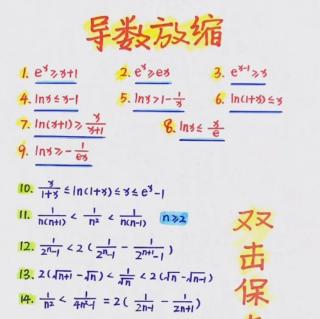 导数放缩
1. eˣ≥x+1 2. eˣ≥ex 3. eˣ⁻¹≥x
4. lnx≤x-1 5. lnx>1-1/x 6. ln(1+x)≤x
7. ln(x+1)≥x/(x+1) 8. lnx≤x/e
9. lnx≥-1/(ex)
10. x/(1+x)≤ln(1+x)≤x≤eˣ-1
11. 1/(n(n+1))<1/n²<1/(n(n-1)) n≥2
12. 1/(2ⁿ-1)<2(1/(2ⁿ-1)-1/(2ⁿ⁺¹-1))
13. 2(√(n+1)-√n)<1/√n<2(√n-√(n-1))
14. 1/n²<1/(4n²-1)=2(1/(2n-1)-1/(2n+1))
双击保